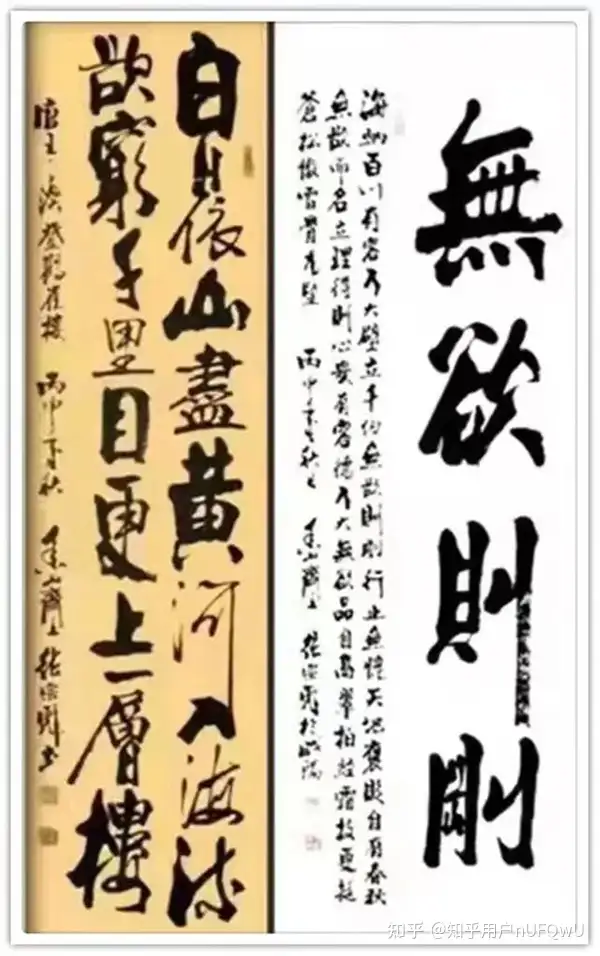 無欲則剛
海納百川有容乃大壁立千仞無欲則剛行止無愧天地褒貶自有春秋
無欲而名立理得則心安有容德乃大無欲品自高翠柏經霜枝更挺
蒼松傲雪骨尤堅 丙申年秋
白日依山盡黃河入海流
欲窮千里目更上一層樓
唐王之渙登鸛雀樓 丙申年秋
知乎 @知乎用户nUFQwU